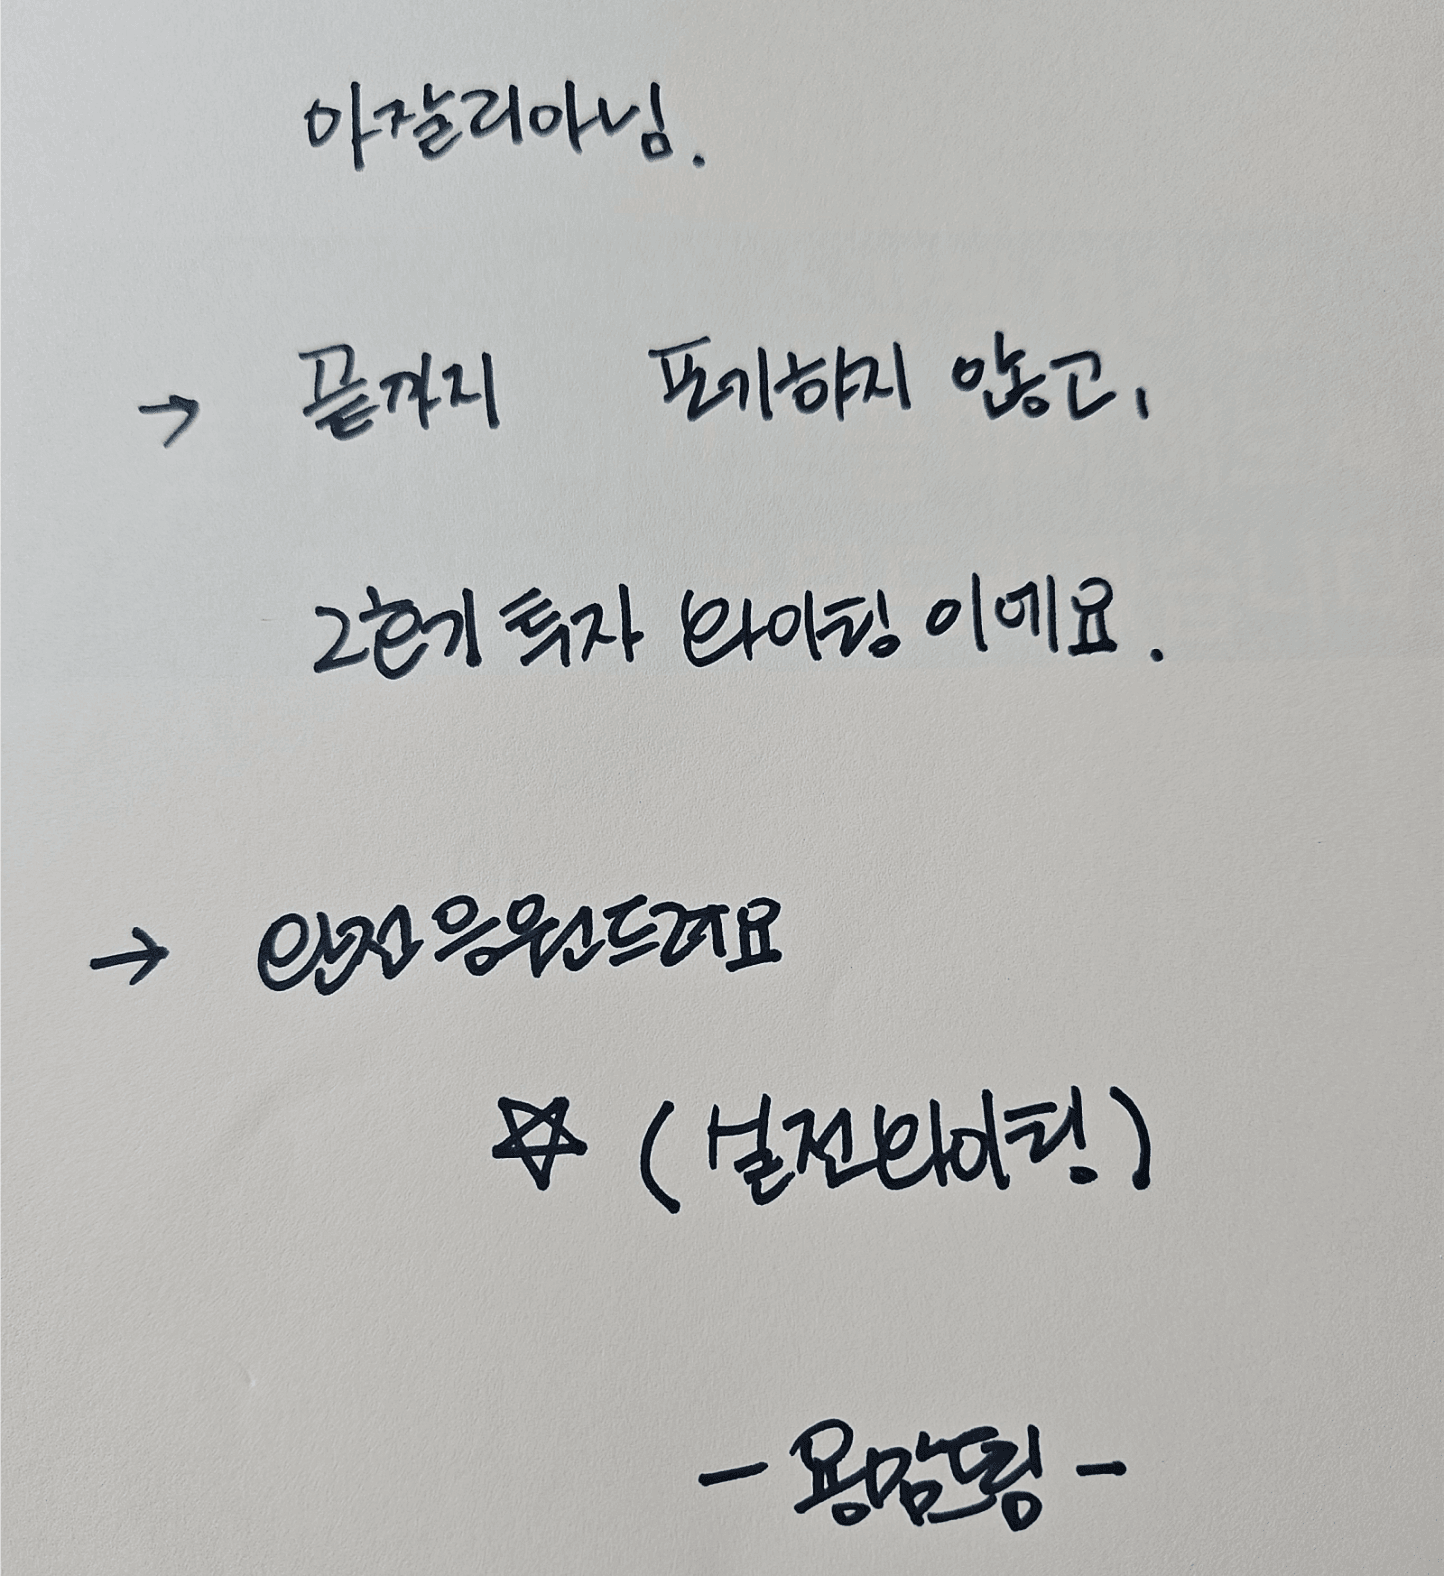 아잘리아님.
→ 끝까지 포기하지 않고,
2학기 투자 화이팅 이에요.
→ 완전응원드려요
☆ (실전화이팅)
- 용맘드림 -